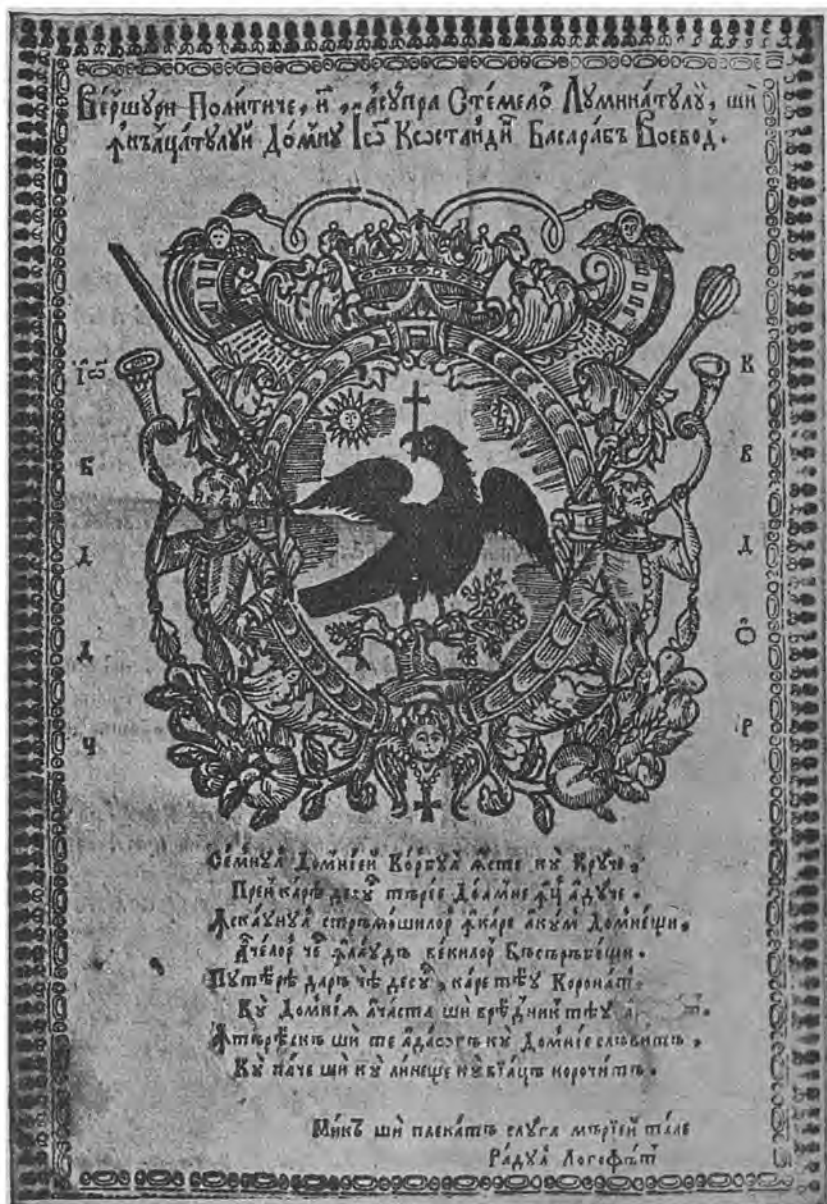 Ве́ршури Поли́тиче, и҆ „а҆су́пра Сте́мело Лꙋмина́тꙋлꙋ, ши
ꙟ҆нълца́тꙋлꙋй До́мнꙋ І҆ѡ Кѡстанди́н Басара́бъ Воево́д.
І҆ѡ К
Б В
Д Д
Д Ѻ
Ч Р
Се́мнꙋл Домні́ей Ко́рбꙋл ꙗ҆сте кꙋ Крꙋ́че,
При́н ка́ре де сꙋ търіе До́амне ꙟ҆ц а҆дꙋ́че.
Ꙟ҆ ска́ꙋнꙋл стръмо́шилор ꙟ҆ ка́ре а҆кꙋ́м Домне́щи,
А҆че́лор че ꙟ҆ла́ꙋдъ ве́килор Бъсъръбе́щи.
Пꙋтѣ́рѣ да́ръ че́ де сꙋ, ка́ре тѣ́ꙋ Корона́т,
Кꙋ Домні́ѧ а҆ча́ста ши вре́дник тѣ́ꙋ
Ꙟ҆търѣ́скъ ши те а҆да́ѻгъ кꙋ Домні́е слъви́тъ,
Кꙋ па́че ши кꙋ ли́неще кꙋ вїа́цъ норочи́тъ.
Ми́къ ши плека́тъ слꙋ́га мърі́ей та́ле
Ра́дꙋл Логофъ́т